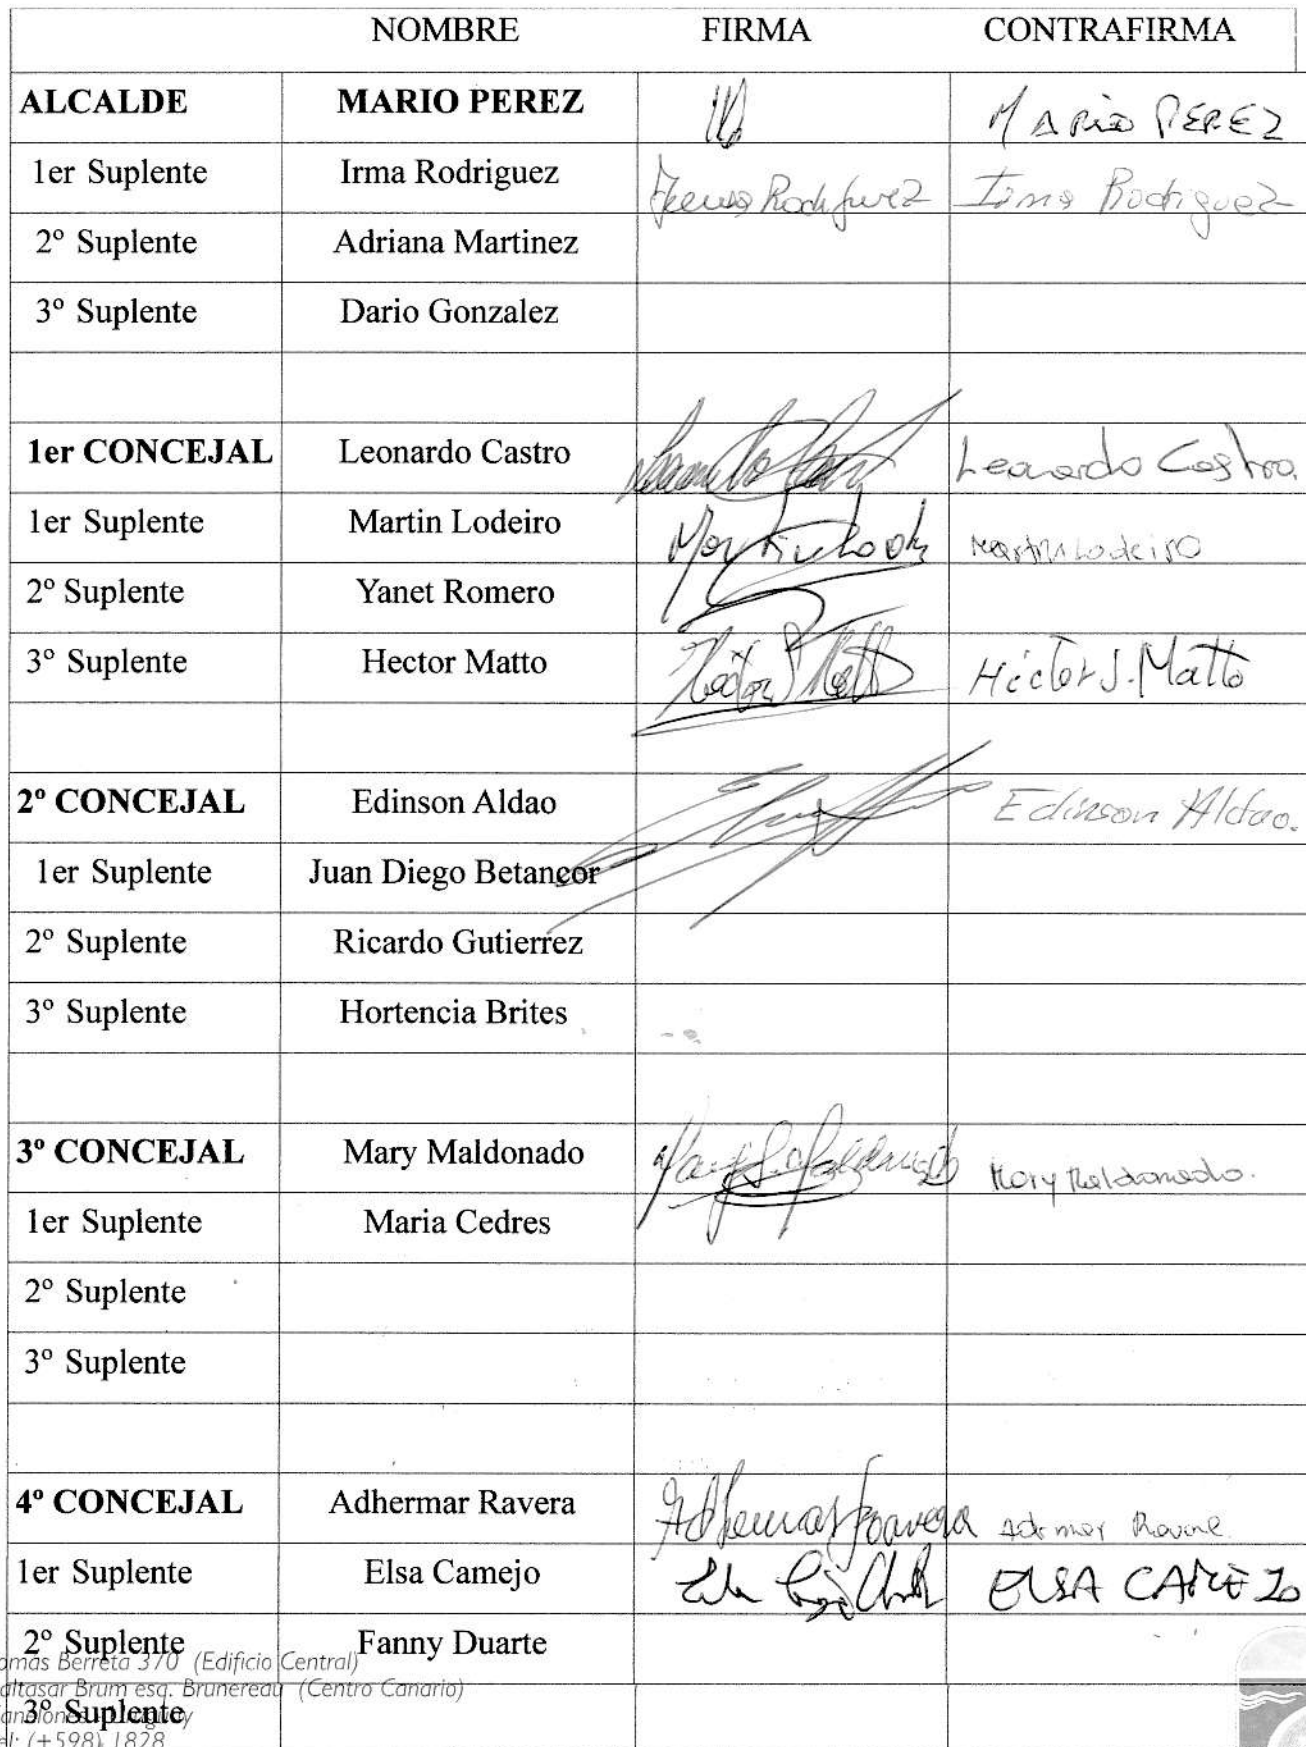 NOMBRE FIRMA CONTRAFIRMA
ALCALDE MARIO PEREZ MARIO PEREZ
1er Suplente Irma Rodriguez Irma Rodriguez
2º Suplente Adriana Martinez
3º Suplente Dario Gonzalez
1er CONCEJAL Leonardo Castro Leonardo Castro.
1er Suplente Martin Lodeiro Martin Lodeiro
2º Suplente Yanet Romero
3º Suplente Hector Matto Héctor J. Matto
2º CONCEJAL Edinson Aldao Edinson Aldao.
1er Suplente Juan Diego Betancor
2º Suplente Ricardo Gutierrez
3º Suplente Hortencia Brites
3º CONCEJAL Mary Maldonado Mary Maldonado.
1er Suplente Maria Cedres
2º Suplente
3º Suplente
4º CONCEJAL Adhermar Ravera Adhemar Ravera
1er Suplente Elsa Camejo ELSA CAMEJO
2º Suplente Fanny Duarte
omás Berreta 370 (Edificio Central)
altasar Brum esq. Brunereau (Centro Canario)
3º Suplente
anelones - Uruguay
el: (+598) 1828